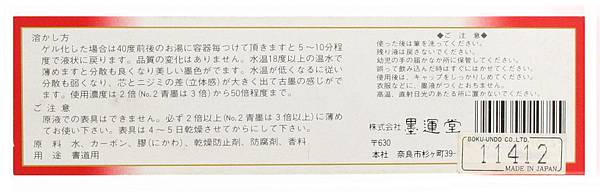 溶かし方
ゲル化した場合は40度前後のお湯に容器毎つけて頂きますと5～10分程
度で液状に戻ります。品質の変化はありません。水温18度以上の温水で
薄めますと分散も良くなり美しい墨色がでます。水温が低くなるに従い
分散も弱くなり、芯とニジミの差(立体感)が大きく出て古墨の感じがで
ます。使用濃度は2倍(No.2青墨は3倍)から50倍程度まで。
ご注意
原液での表具はできません。必ず2倍以上(No.2青墨は3倍以上)に薄め
てお使い下さい。表具は4～5日乾燥させてからにして下さい。
原料 水、カーボン、膠(にかわ)、乾燥防止剤、防腐剤、香料
用途 書道用
◆ご注意◆
使った後は筆を洗ってください。
残り液は戻さないでください。
幼児の手の届かなか所に保管してください。
誤って飲み込んだ時はすぐにはかせてください。
使用後は、キャップをしっかりしめてください。
衣服などに、墨液がつくとおちません。
高温、直射日光のあたる所に置かないでください。
株式会社 墨運堂
〒630
本社 奈良市杉ヶ町39-
BOKU-UNDO CO.,LTD.
11412
MADE IN JAPAN